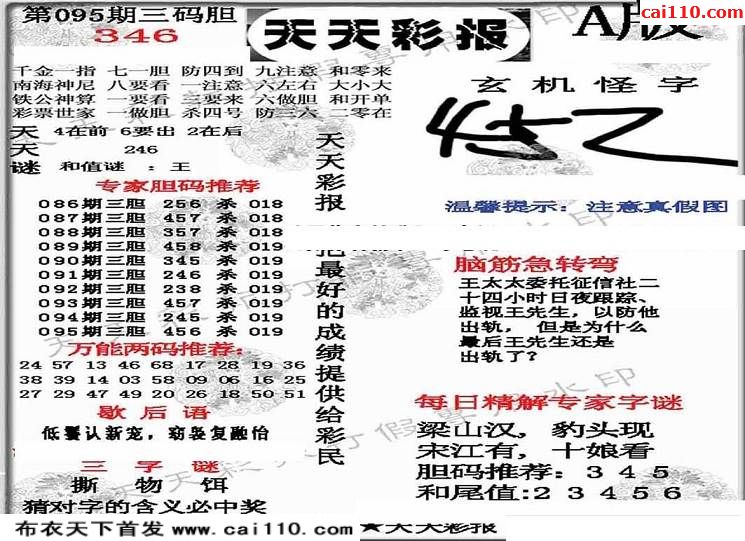 第095期三码胆
346
天天彩报
A版
cai110.com
千金一指 七一胆 防四到 九注意 和零来
南海神尼 八要看 一注意 六左右 大小大
铁公神算 一要看 三要来 六做胆 和开单
彩票世家 一做胆 杀四号 防三六 二零在
天 4在前 6要出 2在后
天 246
谜 和值谜：王
专家胆码推荐
086期三胆 256 杀 018
087期三胆 457 杀 018
088期三胆 357 杀 019
089期三胆 458 杀 019
090期三胆 345 杀 019
091期三胆 246 杀 019
092期三胆 238 杀 019
093期三胆 457 杀 019
094期三胆 245 杀 019
095期三胆 456 杀 019
万能两码推荐：
24 57 13 46 68 17 28 19 36
38 39 14 03 58 09 06 16 25
27 29 47 49 20 26 18 50 51
歇后语
低鬟认新宠，窈袅复融怡
三字谜
撕 物 饵
猜对字的含义必中奖
天天彩报
把最好的成绩提供给彩民
玄机怪字
温馨提示：注意真假图
脑筋急转弯
王太太委托征信社二
十四小时日夜跟踪、
监视王先生，以防他
出轨，但是为什么
最后王先生还是
出轨了？
每日精解专家字谜
梁山汉，豹头现
宋江有，十娘看
胆码推荐：3 4 5
和尾值:2 3 4 5 6
布衣天下首发 www.cai110.com
★天天彩报